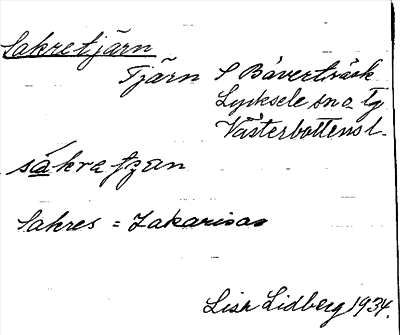 Sakretjärn
Tjärn S Bäverträsk
Lycksele sn o Tg
Västerbottens l.
sákra tzęn
Sakres = Zakarisas
Lisa Lidberg 1934.